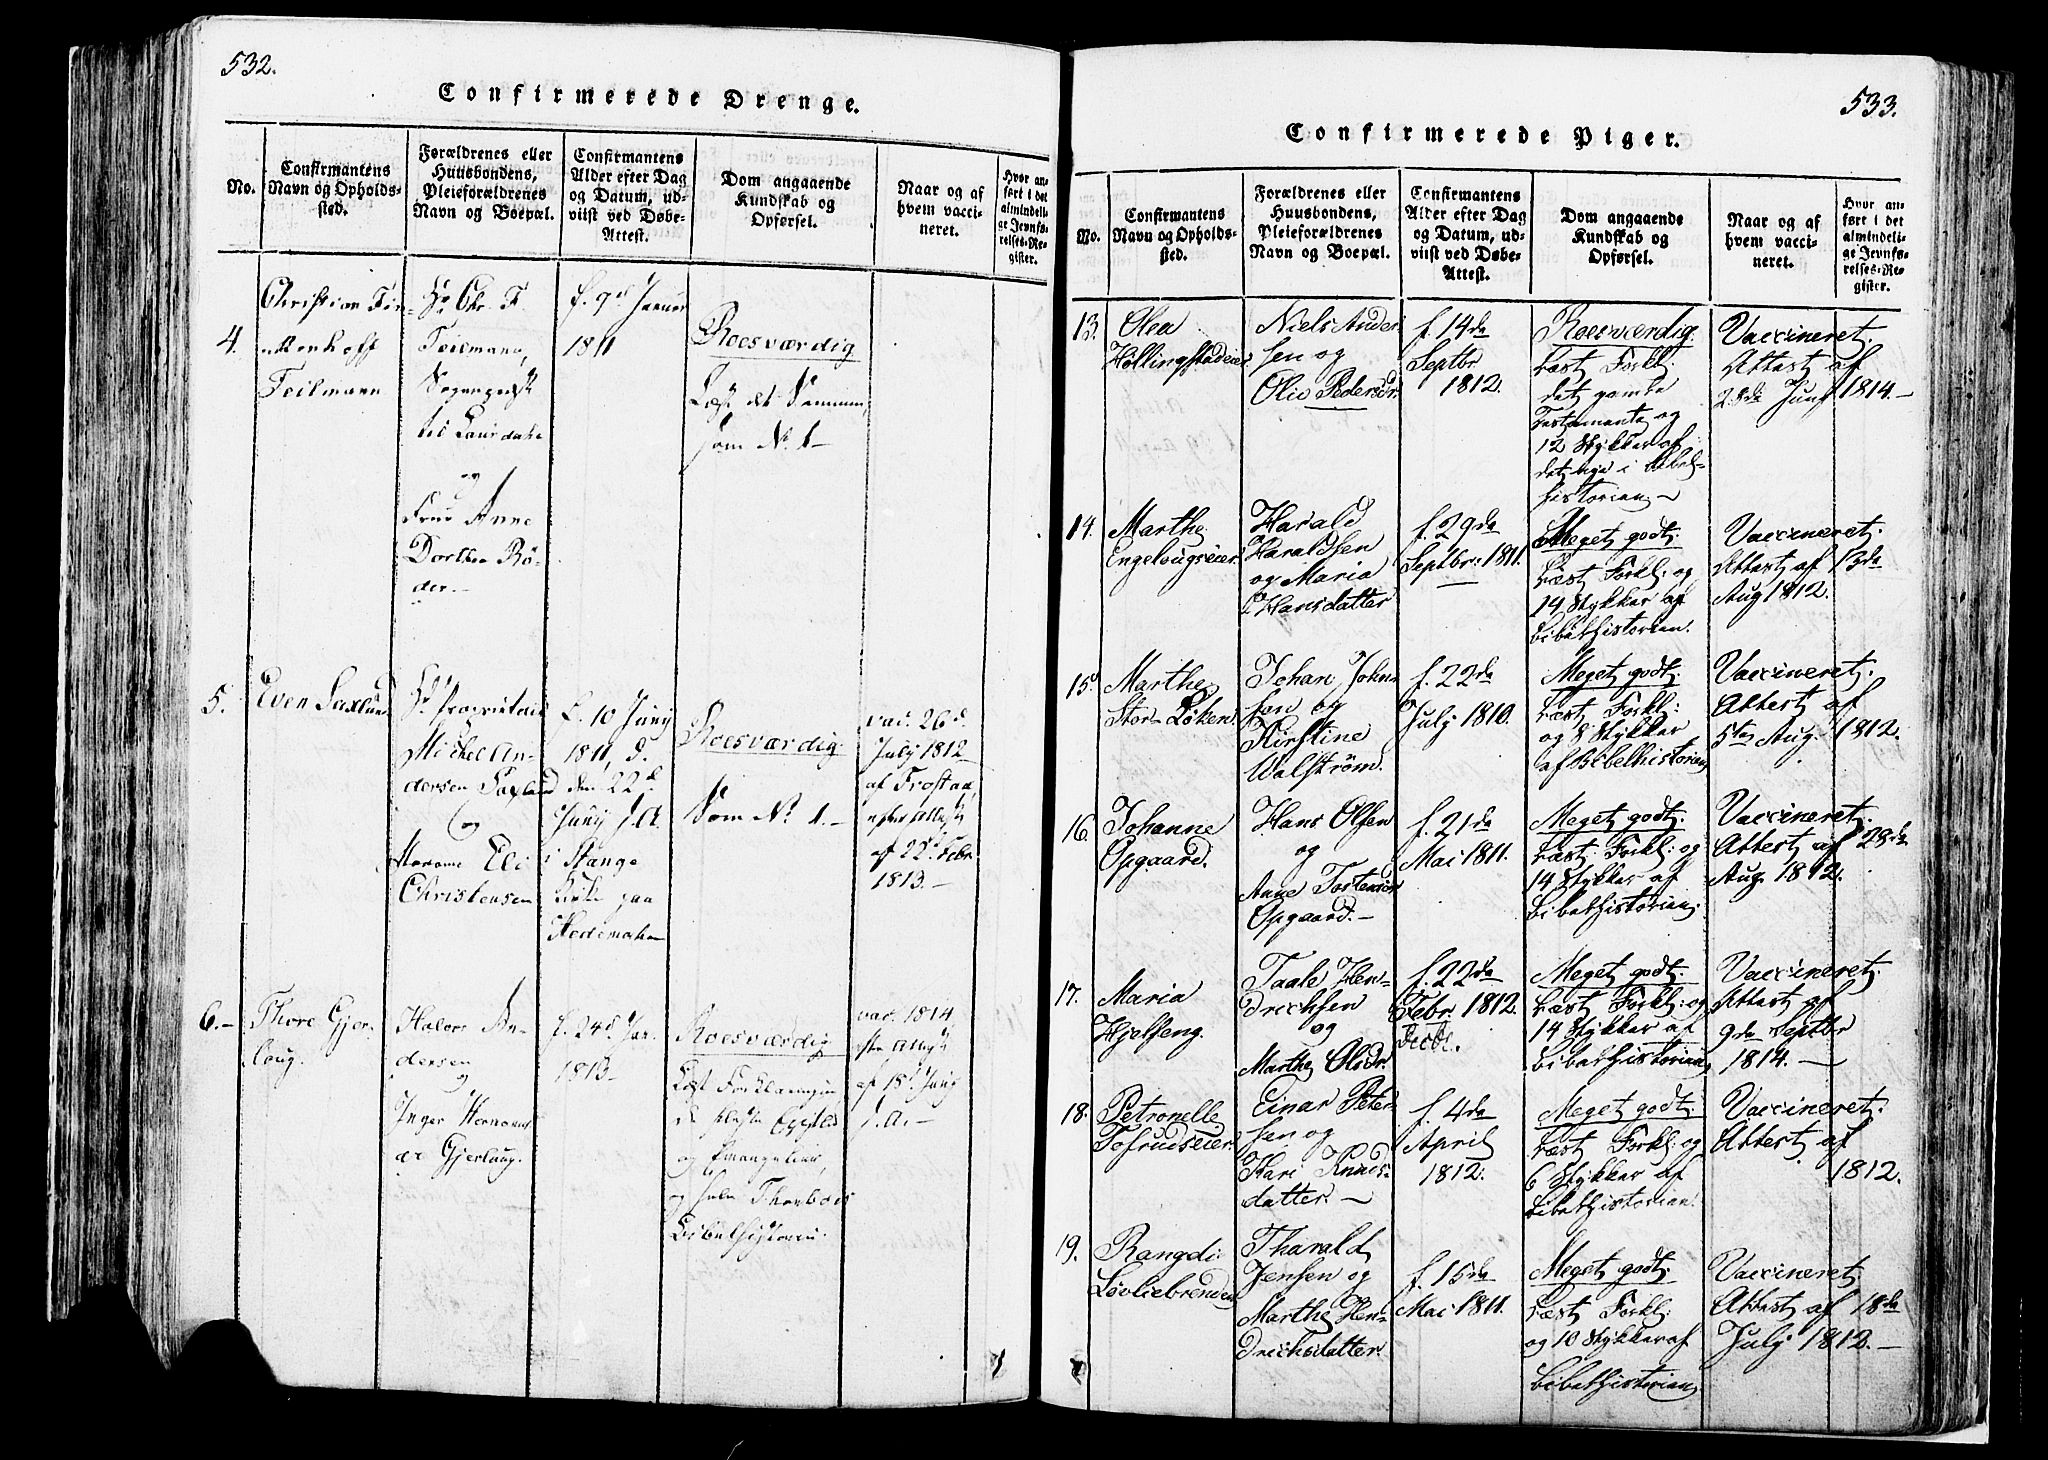 532.
Confirmerede Drenge.
No.
Confirmantens
Navn og Opholds-
sted.
Forældrenes eller
Huusbondens,
Pleieforældrenes
Navn og Boepæl.
Confirmantens
Alder efter Dag
og Datum, ud-
viist ved Døbe-
Attest.
Dom angaaende
Kundskab og
Opførsel.
Naar og af
hvem vacci-
neret.
Hvor an-
ført i det
almindeli-
ge Jevnfø-
relses-Re-
gister.
4.
Christian
Teilmann
Hr Chr. F.
Teilmann,
og
Frue Anne
Dorthea Rö-
der.
f. 9d Januar
1811
Roesværdig
Læst det Samme,
som No. 1
5.
Even Saxlund
Hr Proprietair
Michel An-
dersen Saxlund
og
Madame Eli
Christensen
f. 10 Juny
1811, d.
den 22d
Juny s. A.
i Stange
Kirke paa
Hedemarken
Roesværdig
Som No. 1.
vac. 26d
July 1812
af Frostad,
efter Attest
af 22d Febr.
1813.
6.
Thore Gjer-
loug.
Halvor An-
dersen
og
Inger
Gjerloug.
f. 24d Jan.
1813
Roesværdig
Læst Forklaringen
de fleste Epistler
og Evangelier,
og hele
Bibelhistorie.
vac. 1814,
efter Attest
af 18d Juny
s. A.
533.
Confirmerede Piger.
No.
Confirmantens
Navn og Opholds-
sted.
Forældrenes eller
Huusbondens,
Pleieforældrenes
Navn og Boepæl.
Confirmantens
Alder efter Dag
og Datum, ud-
viist ved Døbe-
Attest.
Dom angaaende
Kundskab og
Opførsel.
Naar og af
hvem vacci-
neret.
Hvor an-
ført i det
almindeli-
ge Jevnfø-
relses-Re-
gister.
13.
Olea
Höllingstadeier
Niels Ander-
sen og
Olia Pedersdr.
f. 14de
Septbr
1812.
Roesværdig.
Læst Forkl:
det gamle
Testamente og
12 Stykker af
det nye i Bibel-
historien
Vaccineret.
Attest af
28de Juny 1814.
14.
Marthe
Engelougseier
Harald
Haraldsen
og Maria
Hansdatter
f. 29de
Septbr: 1811.
Meget godt.
Læst Forkl: og
14 Stykker af
Bibelhistorien.
Vaccineret.
Attest af 13de
Aug 1812.
15.
Marthe
Stor-Löken.
Johan John-
sen og
Kirstine
Walström.
f. 22de
July 1810.
Meget godt.
Læst Forkl:
og 8 Stykker
af Bibelhistorien
Vaccineret.
Attest af
5te Aug. 1812.
16.
Johanne
Opgaard.
Hans Olsen
og
Anne Torstensdr
Opgaard.
f. 21de
Mai 1811.
Meget godt.
Læst Forkl: og
14 Stykker af
Bibelhistorien.
Vaccineret.
Attest af 28de
Aug. 1812.
17.
Maria
Hjelseng.
Taale Hen-
drichsen
og
Marthe Olsdr.
f. 22de
Febr. 1812.
Meget godt.
Læst Forkl: og
14 Stykker af
Bibelhistorien
Vaccineret.
Attest af
9de Septbr
1814.
18.
Petronelle
Tofrudseier.
Einar Peter-
sen og
Kari Knuds-
datter.
f. 4de
April
1812.
Meget godt.
Læst Forkl: og
6 Stykker af
Bibelhistorien.
Vaccineret.
Attest af
1812.
19.
Rangdi
Lövliebrenden
Tharald
Jensen og
Marthe Hen-
drichsdatter.
f. 15de
Mai 1811.
Meget godt.
Læst Forkl:
og 10 Stykker af
Bibelhistorien
Vaccineret
Attest af 18de
July 1812.